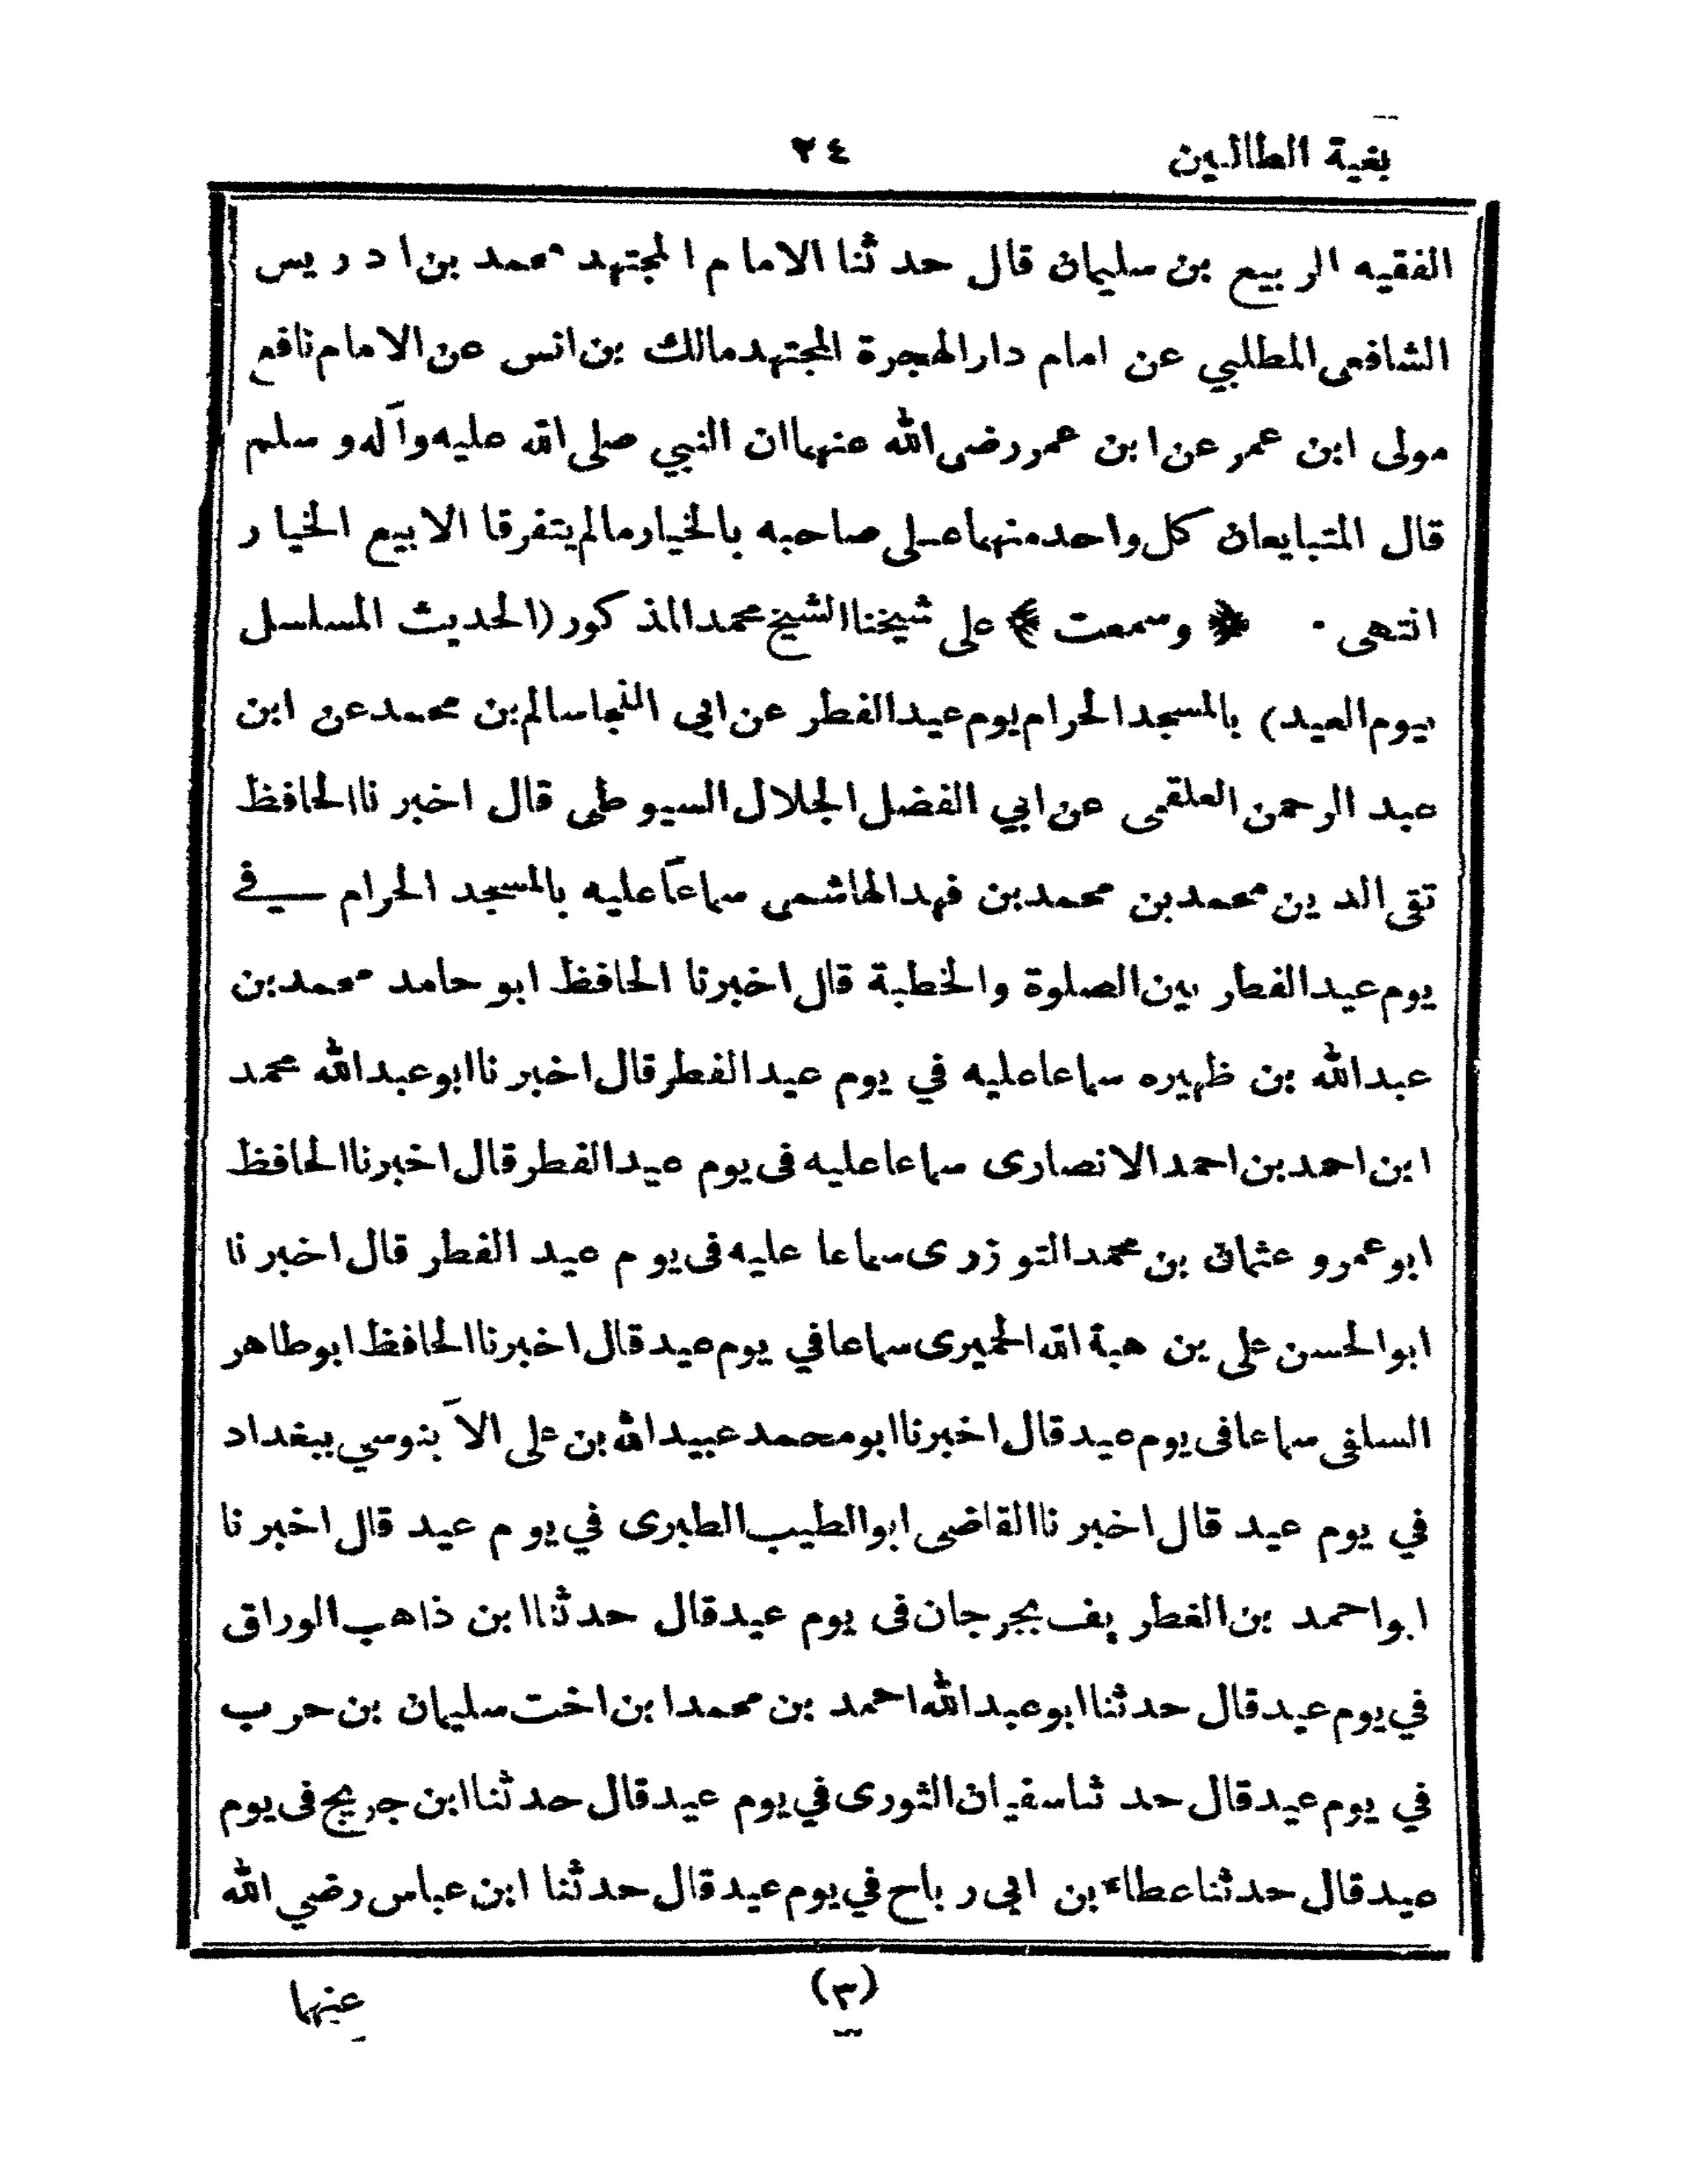 بغية الطالبين
٢٤
الفقيه الربيع بن سليمان قال حدثنا الامام المجتهد محمد بن ادريس
الشافعى المطلبي عن امام دار الهجرة المجتهد مالك بن انس عن الامام نافع
مولى ابن عمر عن ابن عمر رضى الله عنهما ان النبي صلى الله عليه وآله وسلم
قال المتبايعان كل واحد منهما على صاحبه بالخيار مالم يتفرقا الا بيع الخيار
انتهى · ﴿ وسمعت ﴾ على شيخنا الشيخ محمد المذكور (الحديث المسلسل
بيوم العيد) بالمسجد الحرام يوم عيد الفطر عن ابي النجا سالم بن محمد عن ابن
عبد الرحمن العلقمى عن ابي الفضل الجلال السيوطى قال اخبرنا الحافظ
تقى الدين محمد بن محمد بن فهد الهاشمى سماعاً عليه بالمسجد الحرام في
يوم عيد الفطر بين الصلوة والخطبة قال اخبرنا الحافظ ابو حامد محمد بن
عبد الله بن ظهيره سماعا عليه في يوم عيد الفطر قال اخبرنا ابو عبد الله محمد
ابن احمد بن احمد الانصارى سماعا عليه فى يوم عيد الفطر قال اخبرنا الحافظ
ابو عمرو عثمان بن محمد التوزرى سماعا عليه فى يوم عيد الفطر قال اخبرنا
ابو الحسن على بن هبة الله الحميرى سماعا في يوم عيد قال اخبرنا الحافظ ابو طاهر
السلفى سماعا فى يوم عيد قال اخبرنا ابو محمد عبيد الله بن على الآبنوسي ببغداد
في يوم عيد قال اخبرنا القاضى ابو الطيب الطبرى في يوم عيد قال اخبرنا
ابو احمد بن الغطريف بجرجان فى يوم عيد قال حدثنا ابن ذاهب الوراق
في يوم عيد قال حدثنا ابو عبد الله احمد بن محمد ابن اخت سليمان بن حرب
في يوم عيد قال حدثنا سفيان الثورى في يوم عيد قال حدثنا ابن جريج فى يوم
عيد قال حدثنا عطاء بن ابى رباح في يوم عيد قال حدثنا ابن عباس رضي الله
(٣)
عنهما